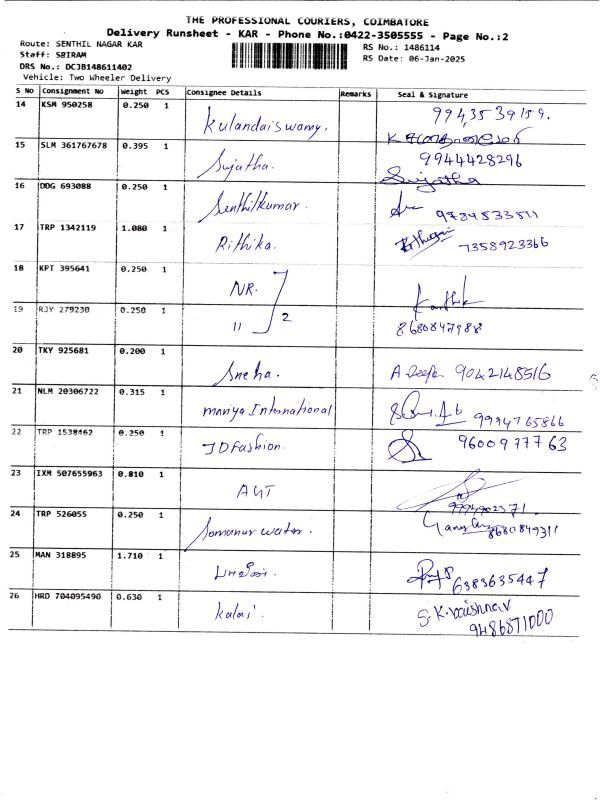 THE PROFESSIONAL COURIERS, COIMBATORE
Delivery Runsheet - KAR - Phone No.:0422-3505555 - Page No.:2
Route: SENTHIL NAGAR KAR
RS No.: 1486114
Staff: SRIRAM
RS Date: 06-Jan-2025
DRS No.: DCJB148611402
Vehicle: Two Wheeler Delivery
S No Consignment No Weight PCS Consignee Details Remarks Seal & Signature
14 KSM 950258 0.250 1 Kulandaiswamy. 9943539159.
15 SLM 361767678 0.395 1 Sujatha. 9944428296
Sujatha
16 DDG 693088 0.250 1 Senthilkumar. 9734533511
17 TRP 1342119 1.080 1 Rithika. 7358923366
18 KPT 395641 0.250 1 NR. Karthik
19 RJY 279230 0.250 1 11 2 8680847988
20 TKY 925681 0.200 1 Sneha. A Deepa 9042148516
21 NLM 20306722 0.315 1 manya International 9994765866
22 TRP 1538462 0.250 1 JD Fashion. 9600977763
23 IXM 507655963 0.810 1 AGT
24 TRP 526055 0.250 1 Somanur water. 8680849311
25 MAN 318895 1.710 1 6383635447
26 HRD 704095490 0.630 1 kalai. S.K.Vaishnav
9486871000